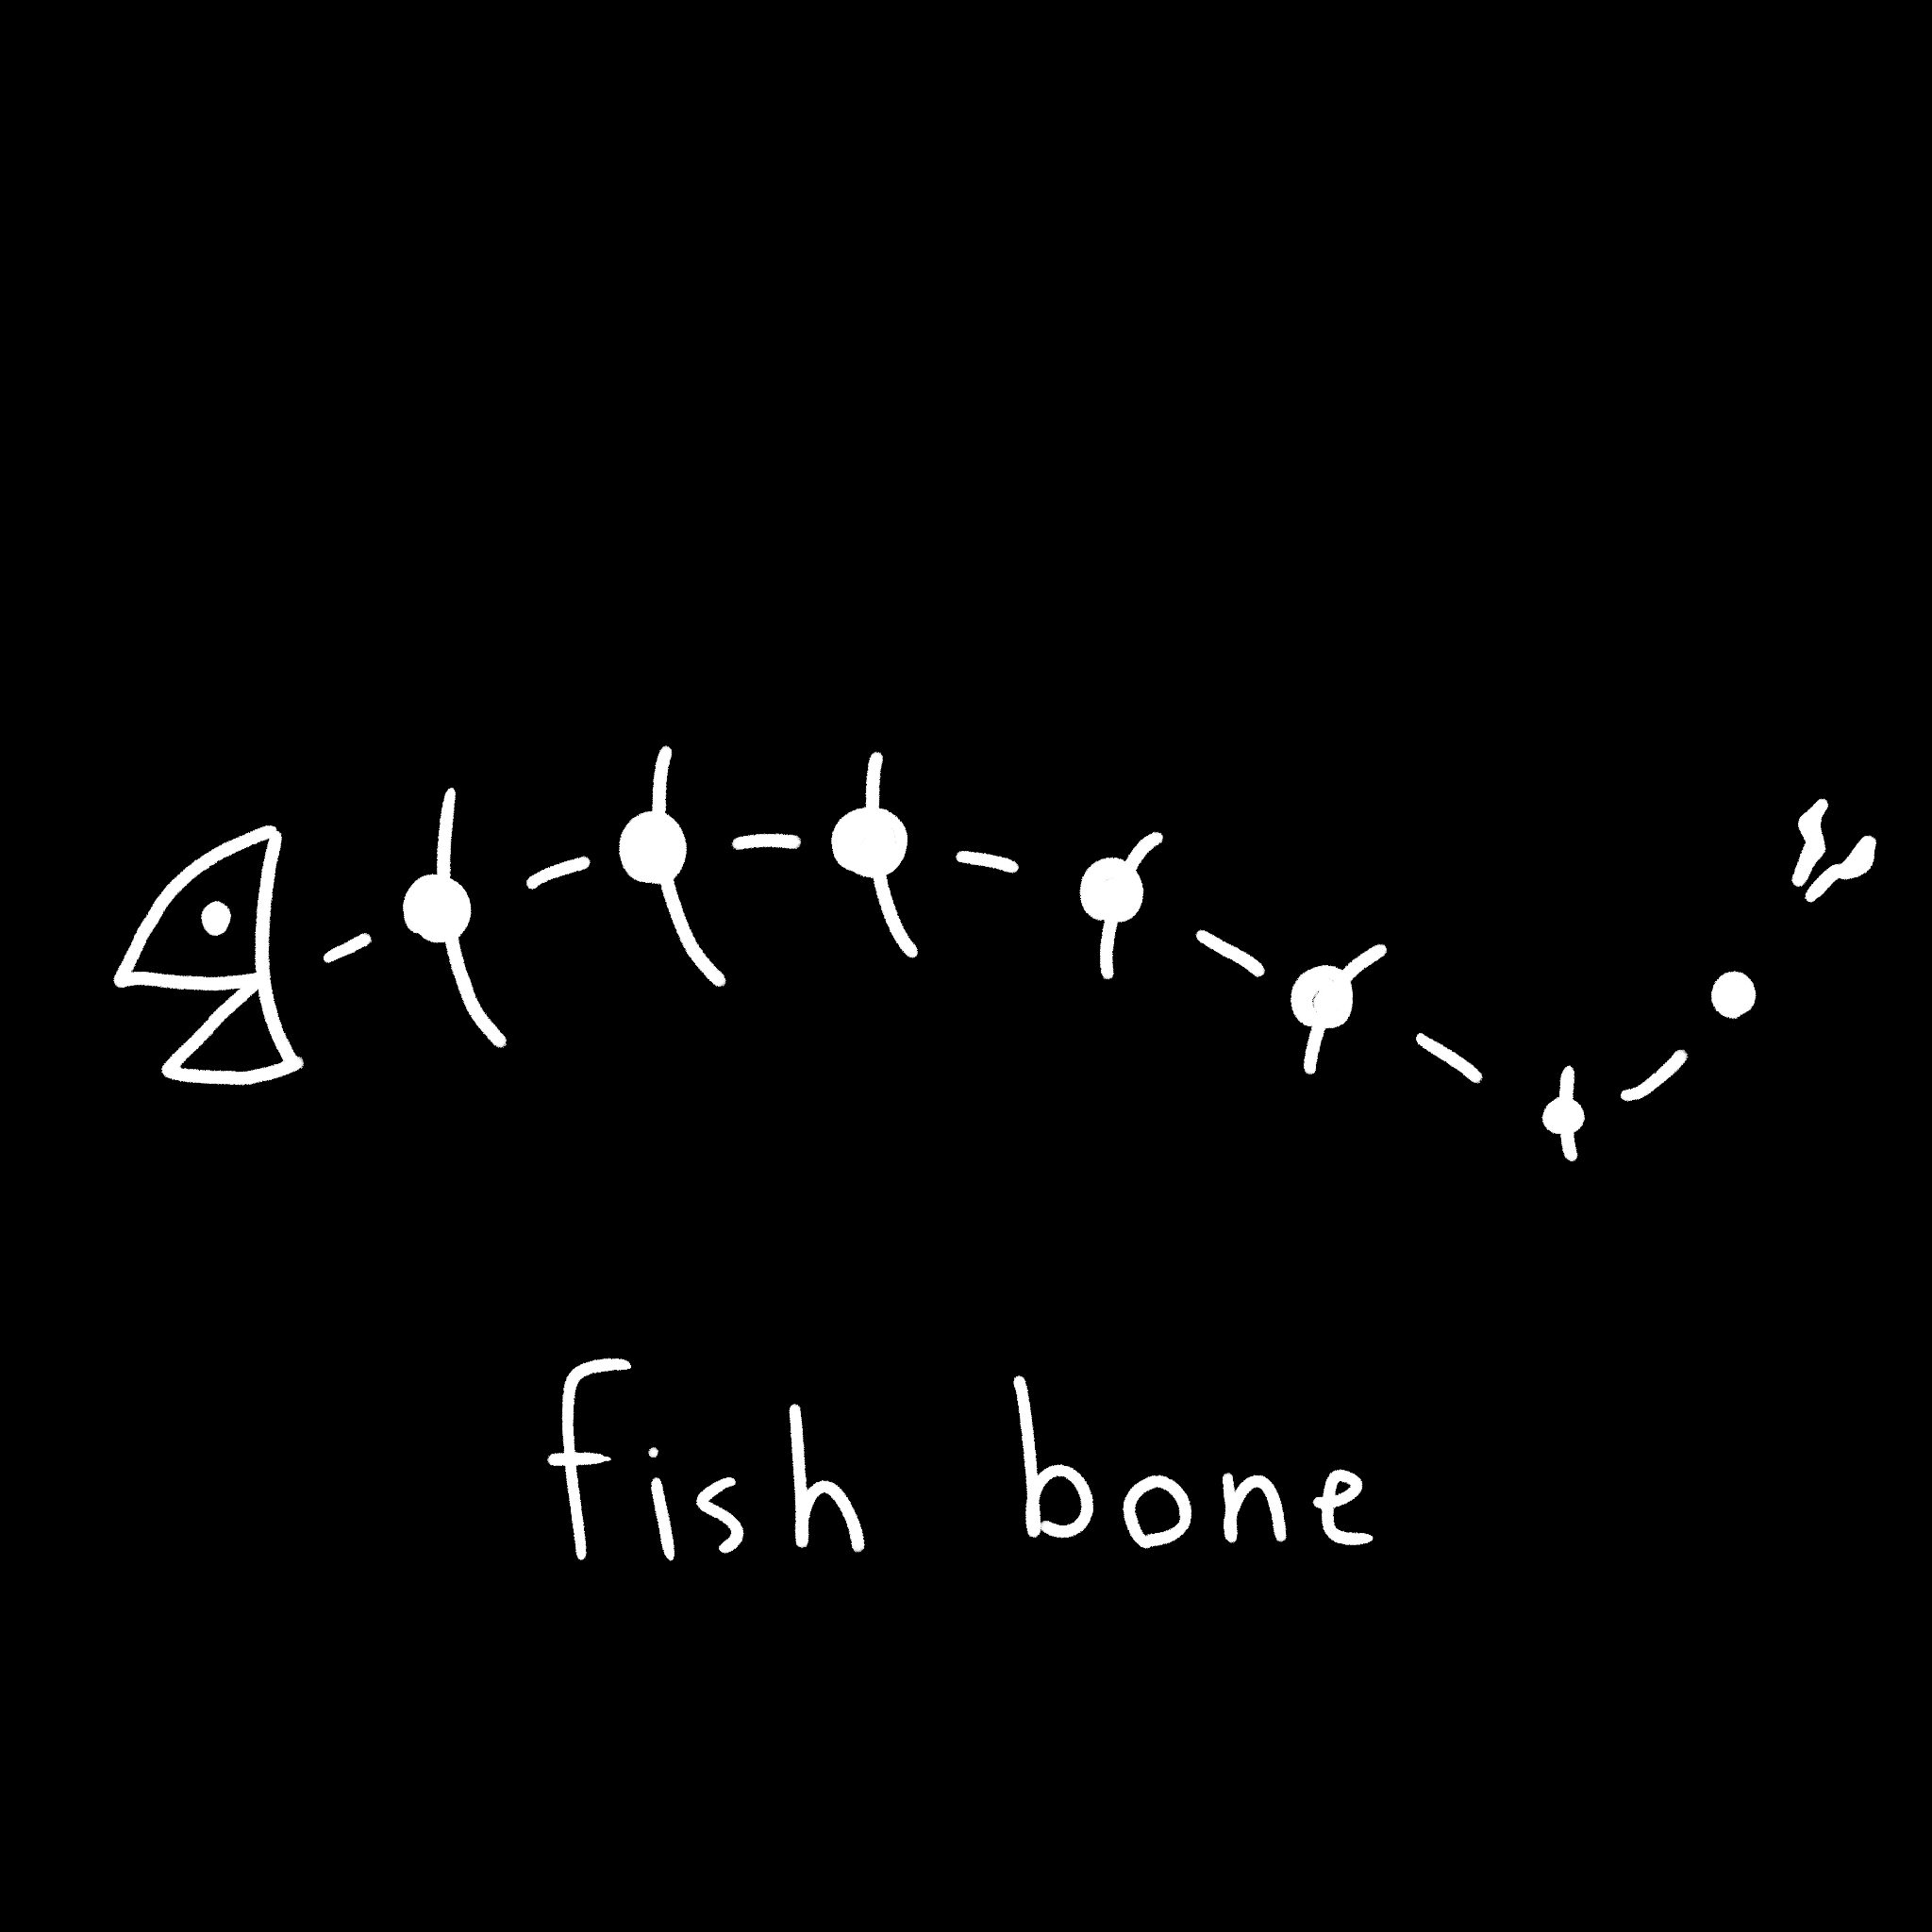 fish bone